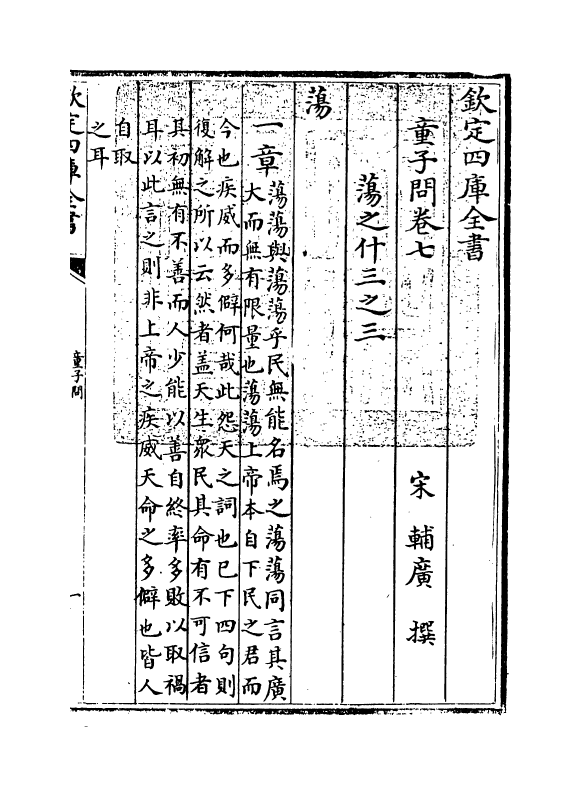 欽定四庫全書
童子問卷七
宋 輔廣 撰
蕩之什三之三
蕩
一章蕩蕩與蕩蕩乎民無能名焉之蕩蕩同言其廣
大而無有限量也蕩蕩上帝本自下民之君而
今也疾威而多僻何哉此怨天之詞也已下四句則
復解之所以云然者盖天生衆民其命有不可信者
其初無有不善而人少能以善自終率多敗以取禍
耳以此言之則非上帝之疾威天命之多僻也皆人
自取
之耳
欽定四庫全書
童子問
一